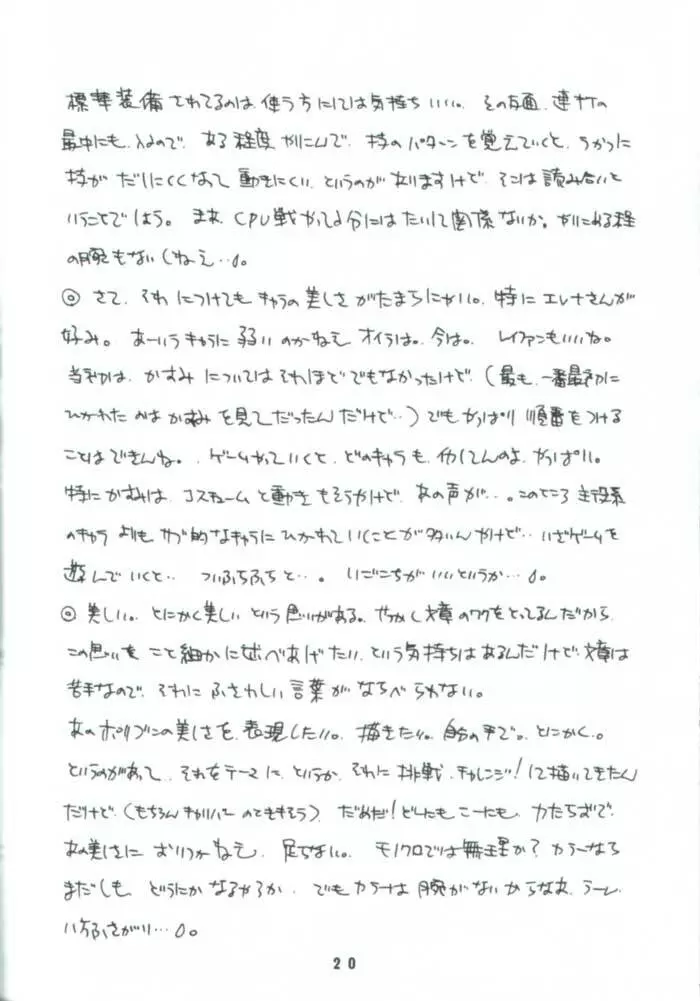 標準装備されてるのは、使う方にしては気持ちいい。その反面、連打の
最中にも、入るので、ある程度やりこんで、技のパターンを覚えていくと、うかつに
技がだしにくくなって動きにくい、というのがありますけど、そこは読み合いと
いうことでしょう。まあ、CPU戦やってる分にはたいして関係ないか。やりこめる程
の腕もないしねえ…。
◎さて、それにつけてもキャラの美しさがたまらにゃい。特にエレナさんが
好み。あーいうキャラに弱いのかねえ、オイラは。今は。レイファンもいいね。
当初は、かすみについてはそれほどでもなかったけど、(最も、一番最初に
ひかれたのはかすみを見てだったんだけど…)でもやっぱり順番をつける
ことはできんね。ゲームやっていくと、どのキャラも、やっぱり。
特にかすみは、コスチュームと動きもそうやけど、あの声が…。このところ主役系
のキャラよりも、サブ的なキャラにひかれていくことが多いんやけど…いざゲームを
遊んでいくと…ついふらふらと…。いごこちがいいというか…。
◎美しい。とにかく美しいという思いがある。せっかく文章のワクをとってるんだから、
この思いをこと細かに述べあげたい、という気持ちはあるんだけど、文章は
苦手なので、それにふさわしい言葉がならべられない。
あのポリゴンの美しさを、表現したい。描きたい。自分の手で。とにかく。
というのがあって、それをテーマに、というか、それに挑戦、チャレンジ!して描いてきたん
だけど、(もちろんキャリバーのときもそう)、だめだ!どーしたもこーしたも、力たらずで、
あの美しさにおいつかねえ、足らない。モノクロでは無理か?カラーなら
まだしも、どうにかなるやろか、でもカラーは腕がないからなあ、うーむ、
八方ふさがり…。
20